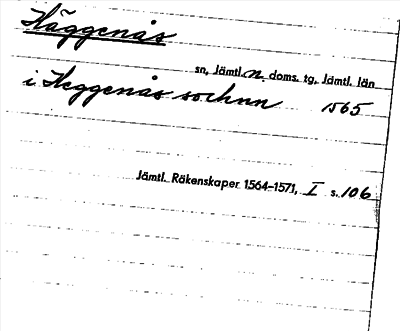 Häggenås
sn, Jämtl. n. doms. tg, Jämtl. län
i Heggenås sochnn 1565
Jämtl. Räkenskaper 1564-1571, I s. 106